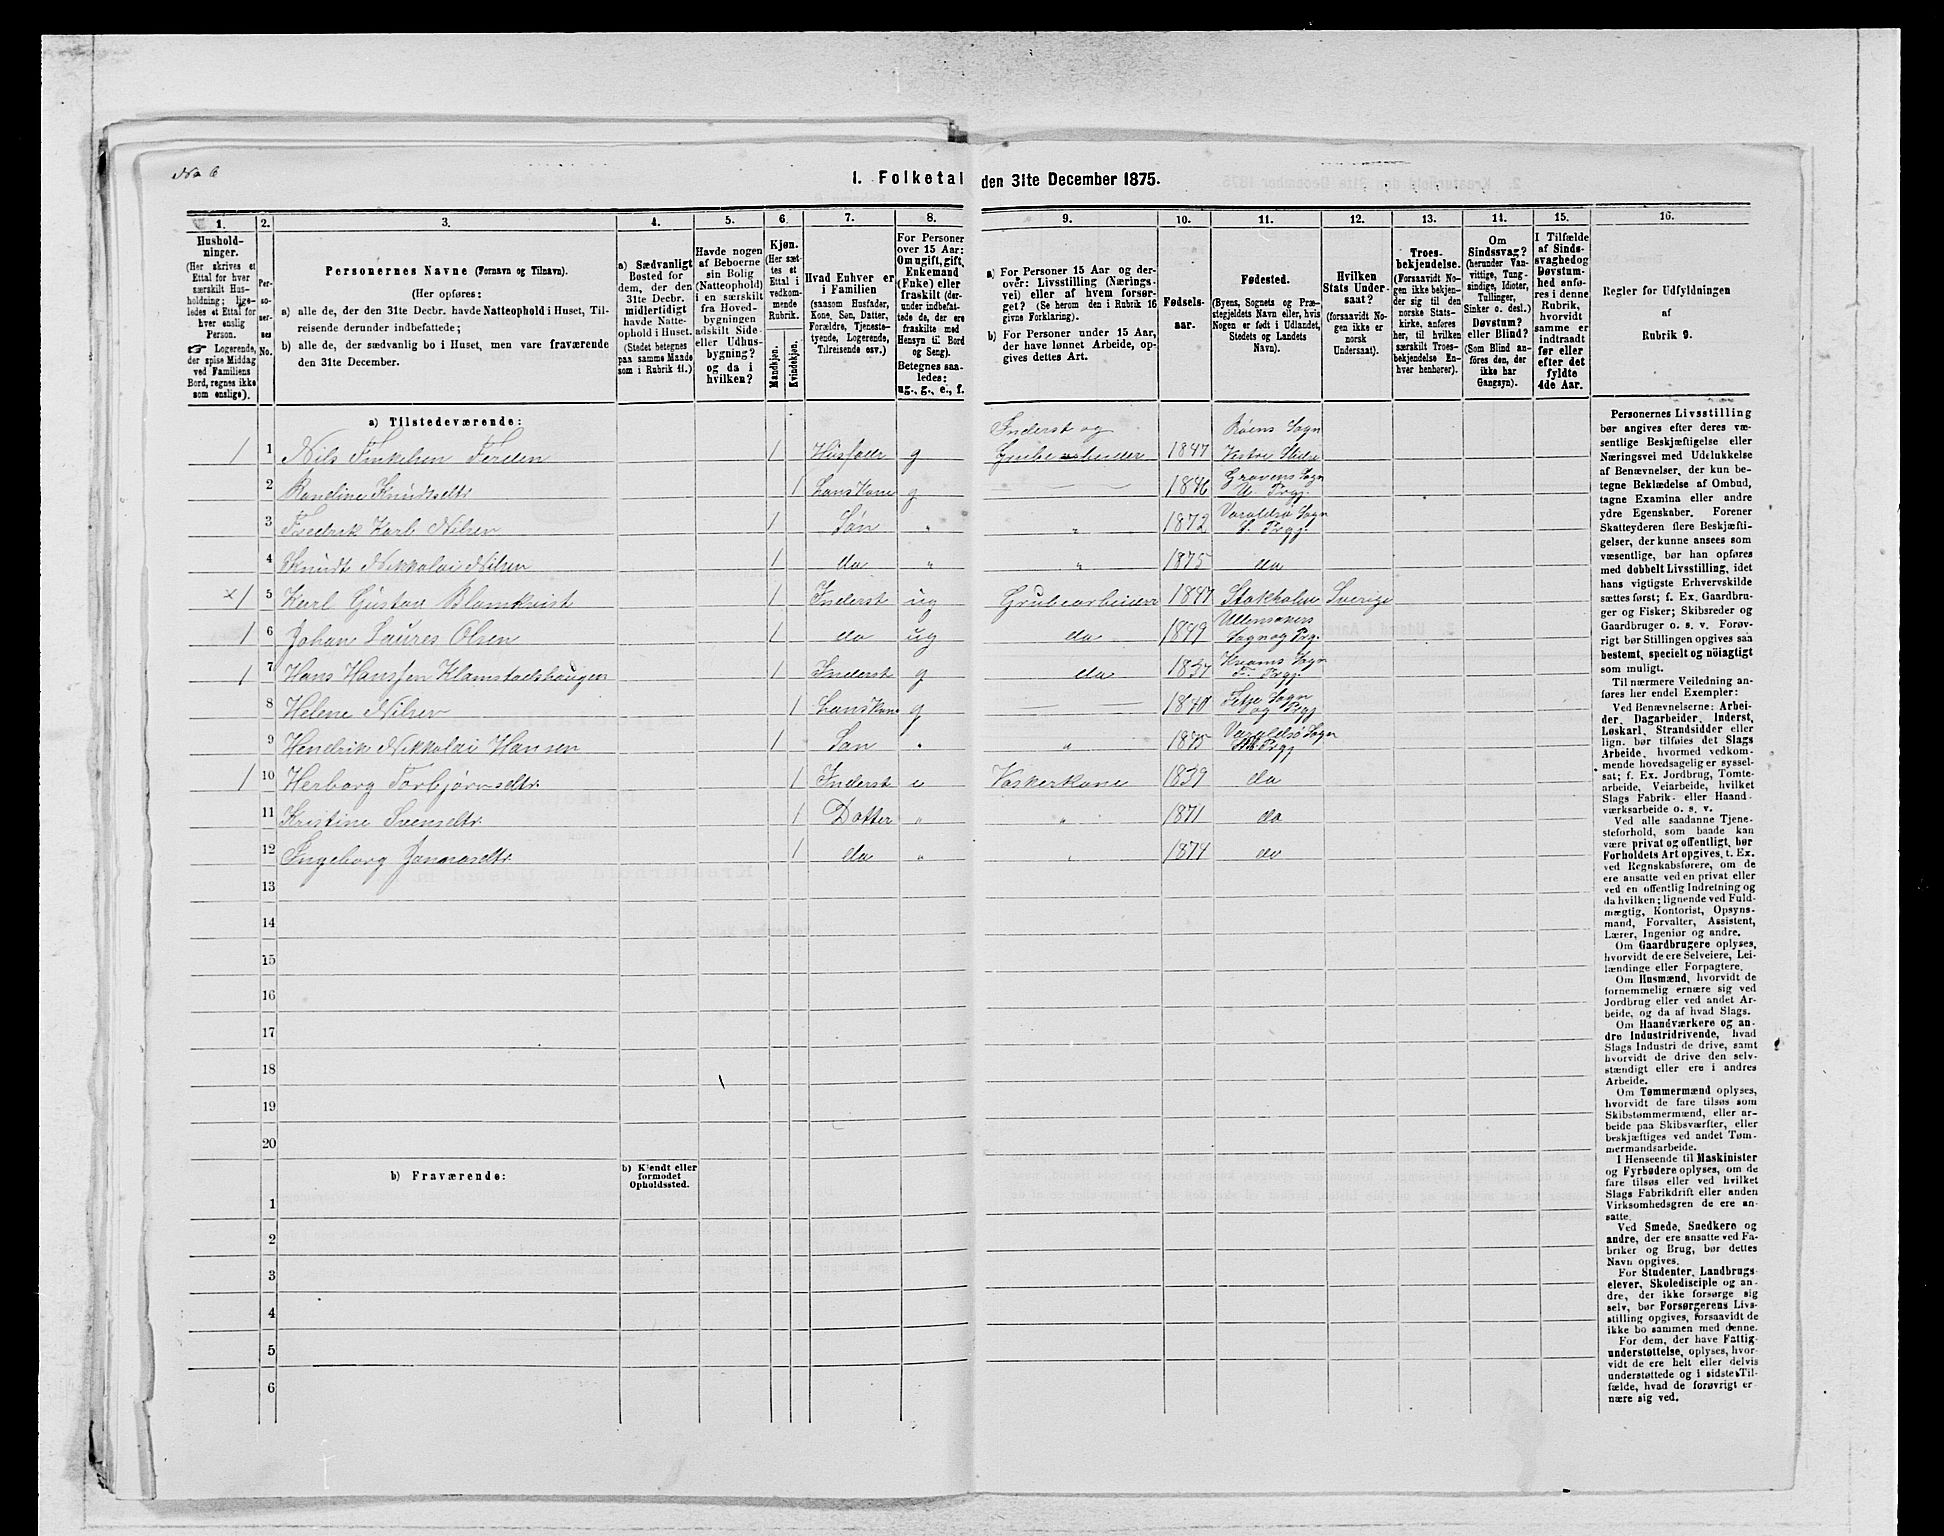 No 6
1. Folketal den 31te December 1875.
1. 2. 3. 4. 5. 6. 7. 8. 9. 10. 11. 12. 13. 14. 15. 16.
Hushold-
ninger.
(Her skrives et
Ettal for hver
særskilt Hus-
holdning; lige-
ledes et Ettal for
hver enslig
Person.
☞ Logerende,
der spise Middag
ved Familiens
Bord, regnes ikke
som enslige).
Per-
so-
ner-
nes
No.
Personernes Navne (Fornavn og Tilnavn).
(Her opføres:
a) alle de, der den 31te Decbr. havde Natteophold i Huset, Til-
reisende derunder indbefattede;
b) alle de, der sædvanlig bo i Huset, men vare fraværende
den 31te December.
a) Sædvanligt
Bosted for
dem, der den
31te Decbr.
midlertidigt
havde Natte-
ophold i Huset.
(Stedet betegnes
paa samme Maade
som i Rubrik 11.)
Havde nogen
af Beboerne
sin Bolig
(Natteophold)
i en særskilt
fra Hoved-
bygningen
adskilt Side-
eller Udhus-
bygning?
og da i
hvilken?
Kjøn.
(Her sæt-
tes et
Ettal i
vedkom-
mende
Rubrik.
Mandkjøn.
Kvindekjøn.
Hvad Enhver er
i Familien
(saasom Husfader,
Kone, Søn, Datter,
Forældre, Tjeneste-
tyende, Logerende,
Tilreisende osv.)
For Personer
over 15 Aar:
Om ugift, gift,
Enkemand
(Enke) eller
fraskilt (der-
under indbefat-
tede de, der ere
fraskilte med
Hensyn til Bord
og Seng).
Betegnes saa-
ledes:
ug., g., e., f.
a) For Personer 15 Aar og der-
over: Livsstilling (Nærings-
vei) eller af hvem forsør-
get? (Se herom den i Rubrik 16
givne Forklaring).
b) For Personer under 15 Aar,
der have lønnet Arbeide, op-
gives dettes Art.
Fødsels-
aar.
Fødested.
(Byens, Sognets og Præ-
stegjeldets Navn eller, hvis
Nogen er født i Udlandet,
Stedets og Landets
Navn).
Hvilken
Stats Under-
saat?
(forsaavidt No-
gen ikke er
norsk
Undersaat).
Troes-
bekjendelse.
(Forsaavidt No-
gen ikke bekjen-
der sig til den
norske Stats-
kirke, anføres
her, til hvilken
særskilt Troes-
bekjendelse En-
hver henhører).
Om
Sindssvag?
(herunder Van-
vittige, Tung-
sindige, Idioter,
Tullinger,
Sinker o. desl.)
Døvstum?
eller Blind?
(Som Blind an-
føres den, der
ikke har
Gangsyn).
I Tilfælde
af Sinds-
svaghed og
Døvstum-
hed anfø-
res i denne
Rubrik,
hvorvidt
samme er
indtraadt
før eller
efter det
fyldte
4de Aar.
Regler før Udfyldningen
af
Rubrik 9.
a) Tilstedeværende:
Inderst og Røens Sogn
1 1 Nils Finkelsen Ferden 1 Husfader g Grubearbeider 1847 Vestre Slidre
2 Randine Knudtsdtr 1 Hans Kone g — 1846 Gravens Sogn U. Prgj.
3 Fredrik Karl Nilsen 1 Søn " " 1872 Varaldsø Sogn S. Prgj.
4 Knudt Nikkolai Nilsen 1 do " " 1875 do
x 1 5 Karl Gustav Blomkvist 1 Inderst ug Grubearbeider 1847 Stokholm Sverige
1 6 Johan Laures Olsen 1 do ug do 1849 Ullensakers Sogn og Prg.
1 7 Hans Hanssen Klamstadshaugen 1 Inderst g do 1837 Kvams Sogn F. Prgj.
8 Helene Nilsen 1 Hans Kone g — 1840 Fitje Sogn og Prgj
9 Hendrik Nikkolai Hansen 1 Søn " " 1875 Varaldsø Sogn Prgj
1 10 Herborg Torbjørnsdtr. 1 Inderst e Vaskerkone 1839 do
11 Kristine Svensdtr. 1 Dotter " " 1871 do
12 Ingeborg 1 do " " 1874 do
13
14
15
16
17
18
19
20
b) Fraværende:
b) Kjendt eller
formodet
Opholdssted.
1
2
3
4
5
6
Personernes Livsstilling
bør angives efter deres væ-
sentlige Beskjæftigelse eller
Næringsvei med Udelukkelse
af Benævnelser, der kun be-
tegne Beklædelse af Ombud,
tagne Examina eller andre
ydre Egenskaber. Forener
Skatteyderen flere Beskjæfti-
gelser, der kunne ansees som
væsentlige, bør han opføres
med dobbelt Livsstilling, idet
hans vigtigste Erhvervskilde
sættes først; f. Ex. Gaardbru-
ger og Fisker; Skibsreder og
Gaardbruger o. s. v. Forøv-
rigt bør Stillingen opgives saa
bestemt, specielt og nöiagtigt
som muligt.
Til nærmere Veiledning an-
føres her endel Exempler:
Ved Benævnelserne: Arbei-
der, Dagarbeider, Inderst,
Løskarl, Strandsidder eller
lign. bør tilføies det Slags
Arbeide, hvormed vedkom-
mende hovedsagelig er syssel-
sat; f. Ex. Jordbrug, Tomte-
arbeide, Veiarbeide, hvilket
Slags Fabrik- eller Haand-
værksarbeide o. s. v.
Ved alle saadanne Tjene-
steforhold, som baade kan
være privat og offentligt, bør
Forholdets Art opgives, t. Ex.
ved Regnskabsførere, om de
ere ansatte ved en privat eller
ved en offentlig Indretning og
da hvilken; lignende ved Fuld-
mægtig, Kontorist, Opsyns-
mand, Forvalter, Assistent,
Lærer, Ingeniør og andre.
Om Gaardbrugere oplyses,
hvorvidt de ere Selveiere, Lei-
lændinge eller Forpagtere.
Om Husmænd, hvorvidt de
fornemmelig ernære sig ved
Jordbrug eller ved andet Ar-
beide, og da af hvad Slags.
Om Haandværkere og an-
dre Industridrivende, hvad
Slags Industri de drive, samt
hvorvidt de drive den selv-
stændigt eller ere i andres
Arbeide.
Om Tømmermænd oplyses,
hvorvidt de fare tilsøs som
Skibstømmermænd, eller ar-
beide paa Skibsværfter, eller
beskjæftiges ved andet Tøm-
mermandsarbeide.
I Henseende til Maskinister
og Fyrbødere oplyses, om de
fare tilsøs eller ved hvilket
Slags Fabrikdrift eller anden
Virksomhedsgren de ere an-
satte.
Ved Smede, Snedkere og
andre, der ere ansatte ved Fa-
briker og Brug, bør dettes
Navn opgives.
For Studenter, Landbrugs-
elever, Skoledisciple og an-
dre, der ikke forsørge sig
selv, bør Forsørgerens Livs-
stilling opgives, forsaavidt de
ikke bo sammen med denne.
For dem, der have Fattig-
understøttelse, oplyses, hvor-
vidt de ere helt eller delvis
understøttede og i sidste Til-
fælde, hvad de forøvrigt er-
nære sig ved.